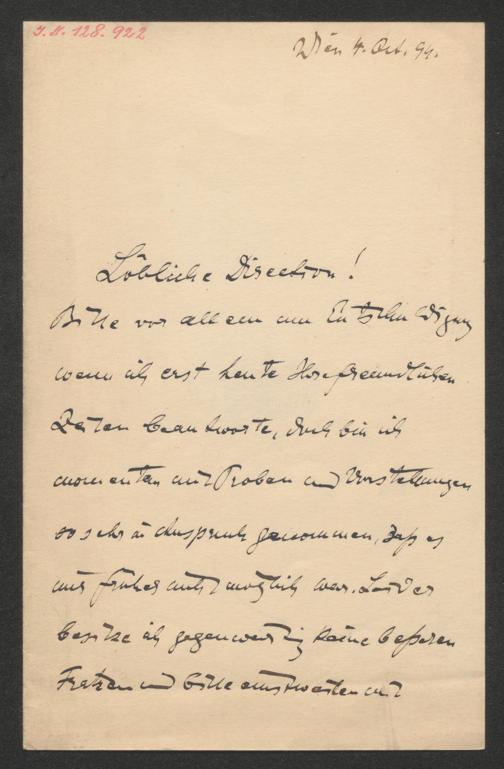 J.N. 128.922
Wien 4. Oct. 94.
Löbliche Direction!
Bitte vor allem um Entschuldigung
wenn ich erst heute Ihre freundlichen
Zeilen beantworte, doch bin ich
momentan mit Proben und Vorstellungen
so sehr in Anspruch genommen, daß es
mir früher nicht möglich war. Leider
besitze ich gegenwärtig keine beßeren
Fratzen und bitte einstweilen mit